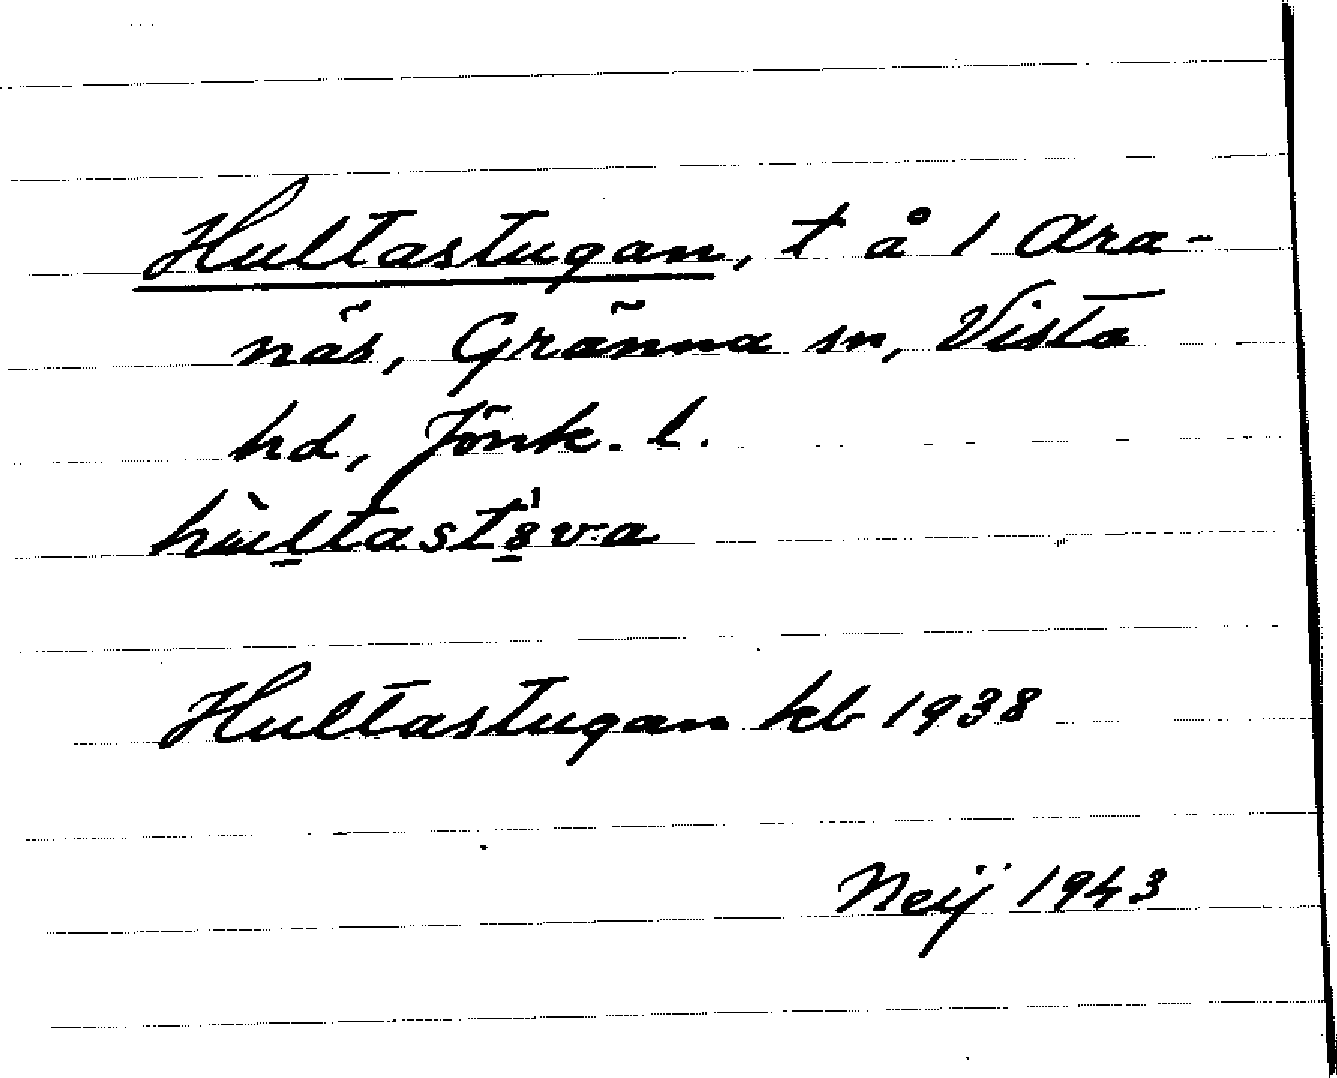 Hultastugan, t å 1 Ara-
näs, Gränna sn, Vista
hd, Jönk. l.
hùltast8̠ˈva
Hultastugan kb 1938
Neij 1943